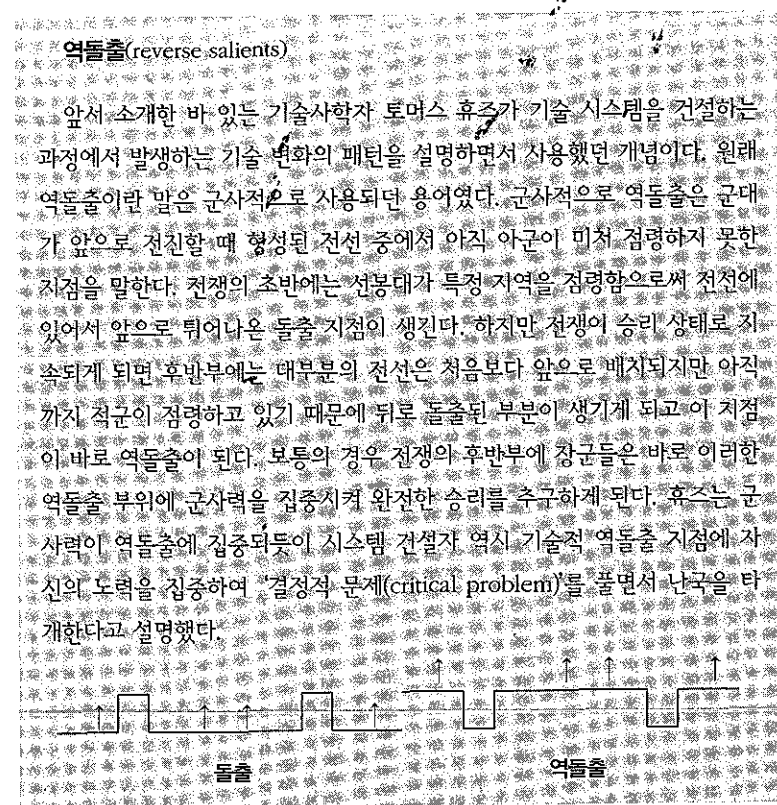 역돌출(reverse salients)
앞서 소개한 바 있는 기술사학자 토머스 휴즈가 기술 시스템을 건설하는
과정에서 발생하는 기술 변화의 패턴을 설명하면서 사용했던 개념이다. 원래
역돌출이란 말은 군사적으로 사용되던 용어였다. 군사적으로 역돌출은 군대
가 앞으로 전진할 때 형성된 전선 중에서 아직 아군이 미처 점령하지 못한
지점을 말한다. 전쟁의 초반에는 선봉대가 특정 지역을 점령함으로써 전선에
있어서 앞으로 튀어나온 돌출 지점이 생긴다. 하지만 전쟁이 승리 상태로 지
속되게 되면 후반부에는 대부분의 전선은 처음보다 앞으로 배치되지만 아직
까지 적군이 점령하고 있기 때문에 뒤로 돌출된 부분이 생기게 되고 이 지점
이 바로 역돌출이 된다. 보통의 경우 전쟁의 후반부에 장군들은 바로 이러한
역돌출 부위에 군사력을 집중시켜 완전한 승리를 추구하게 된다. 휴즈는 군
사력이 역돌출에 집중되듯이 시스템 건설자 역시 기술적 역돌출 지점에 자
신의 노력을 집중하여 '결정적 문제(critical problem)'를 풀면서 난국을 타
개한다고 설명했다.
돌출
역돌출